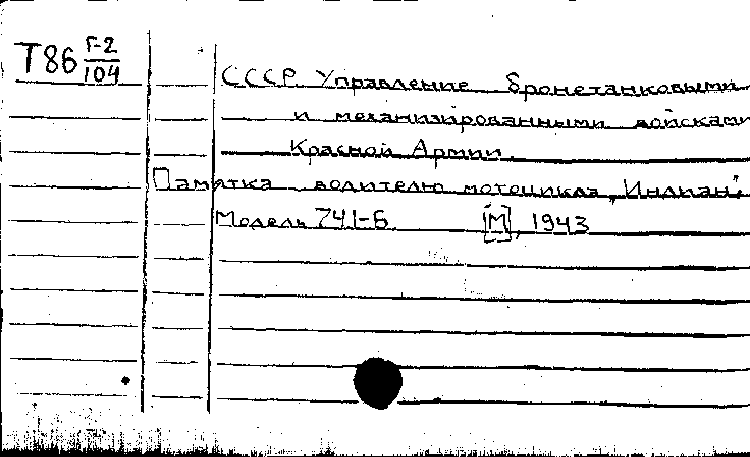 Т86 Г-2/104
СССР. Управление бронетанковыми
и механизированными войсками
Красной Армии.
Памятка водителю мотоцикла "Индиан".
Модель 741-Б. [М], 1943